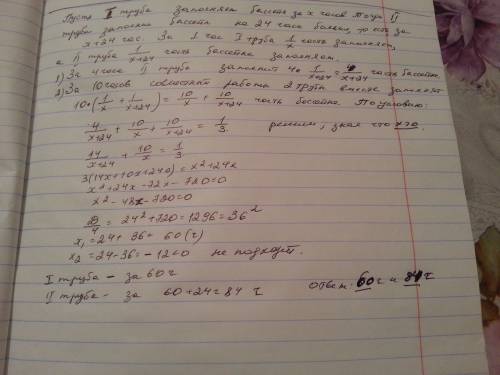 Пусть I труба заполняет бассейн за x часов тогда II
труба заполнит бассейн на 24 часа больше, то есть за
x+24 час. За 1 час I труба 1/x часть заполняет,
а II труба 1/(x+24) часть бассейна заполняет.
1) За 4 часа II труба заполнит 4·1/(x+24) = 4/(x+24) часть бассейна.
2) За 10 часов совместной работы 2 трубы вместе заполнят
10·(1/x + 1/(x+24)) = 10/x + 10/(x+24) часть бассейна По условию:
4/(x+24) + 10/x + 10/(x+24) = 1/3. решим, зная что x>0.
14/(x+24) + 10/x = 1/3
3(14x+10x+240) = x²+24x
x²+24x-72x-720=0
x²-48x-720=0
D/4 = 24²+720=1296=36²
x₁=24+36=60(ч)
x₂=24-36=-12<0 не подходит.
I труба - за 60 ч
II труба - за 60+24=84 ч Ответ: 60 ч и 84 ч